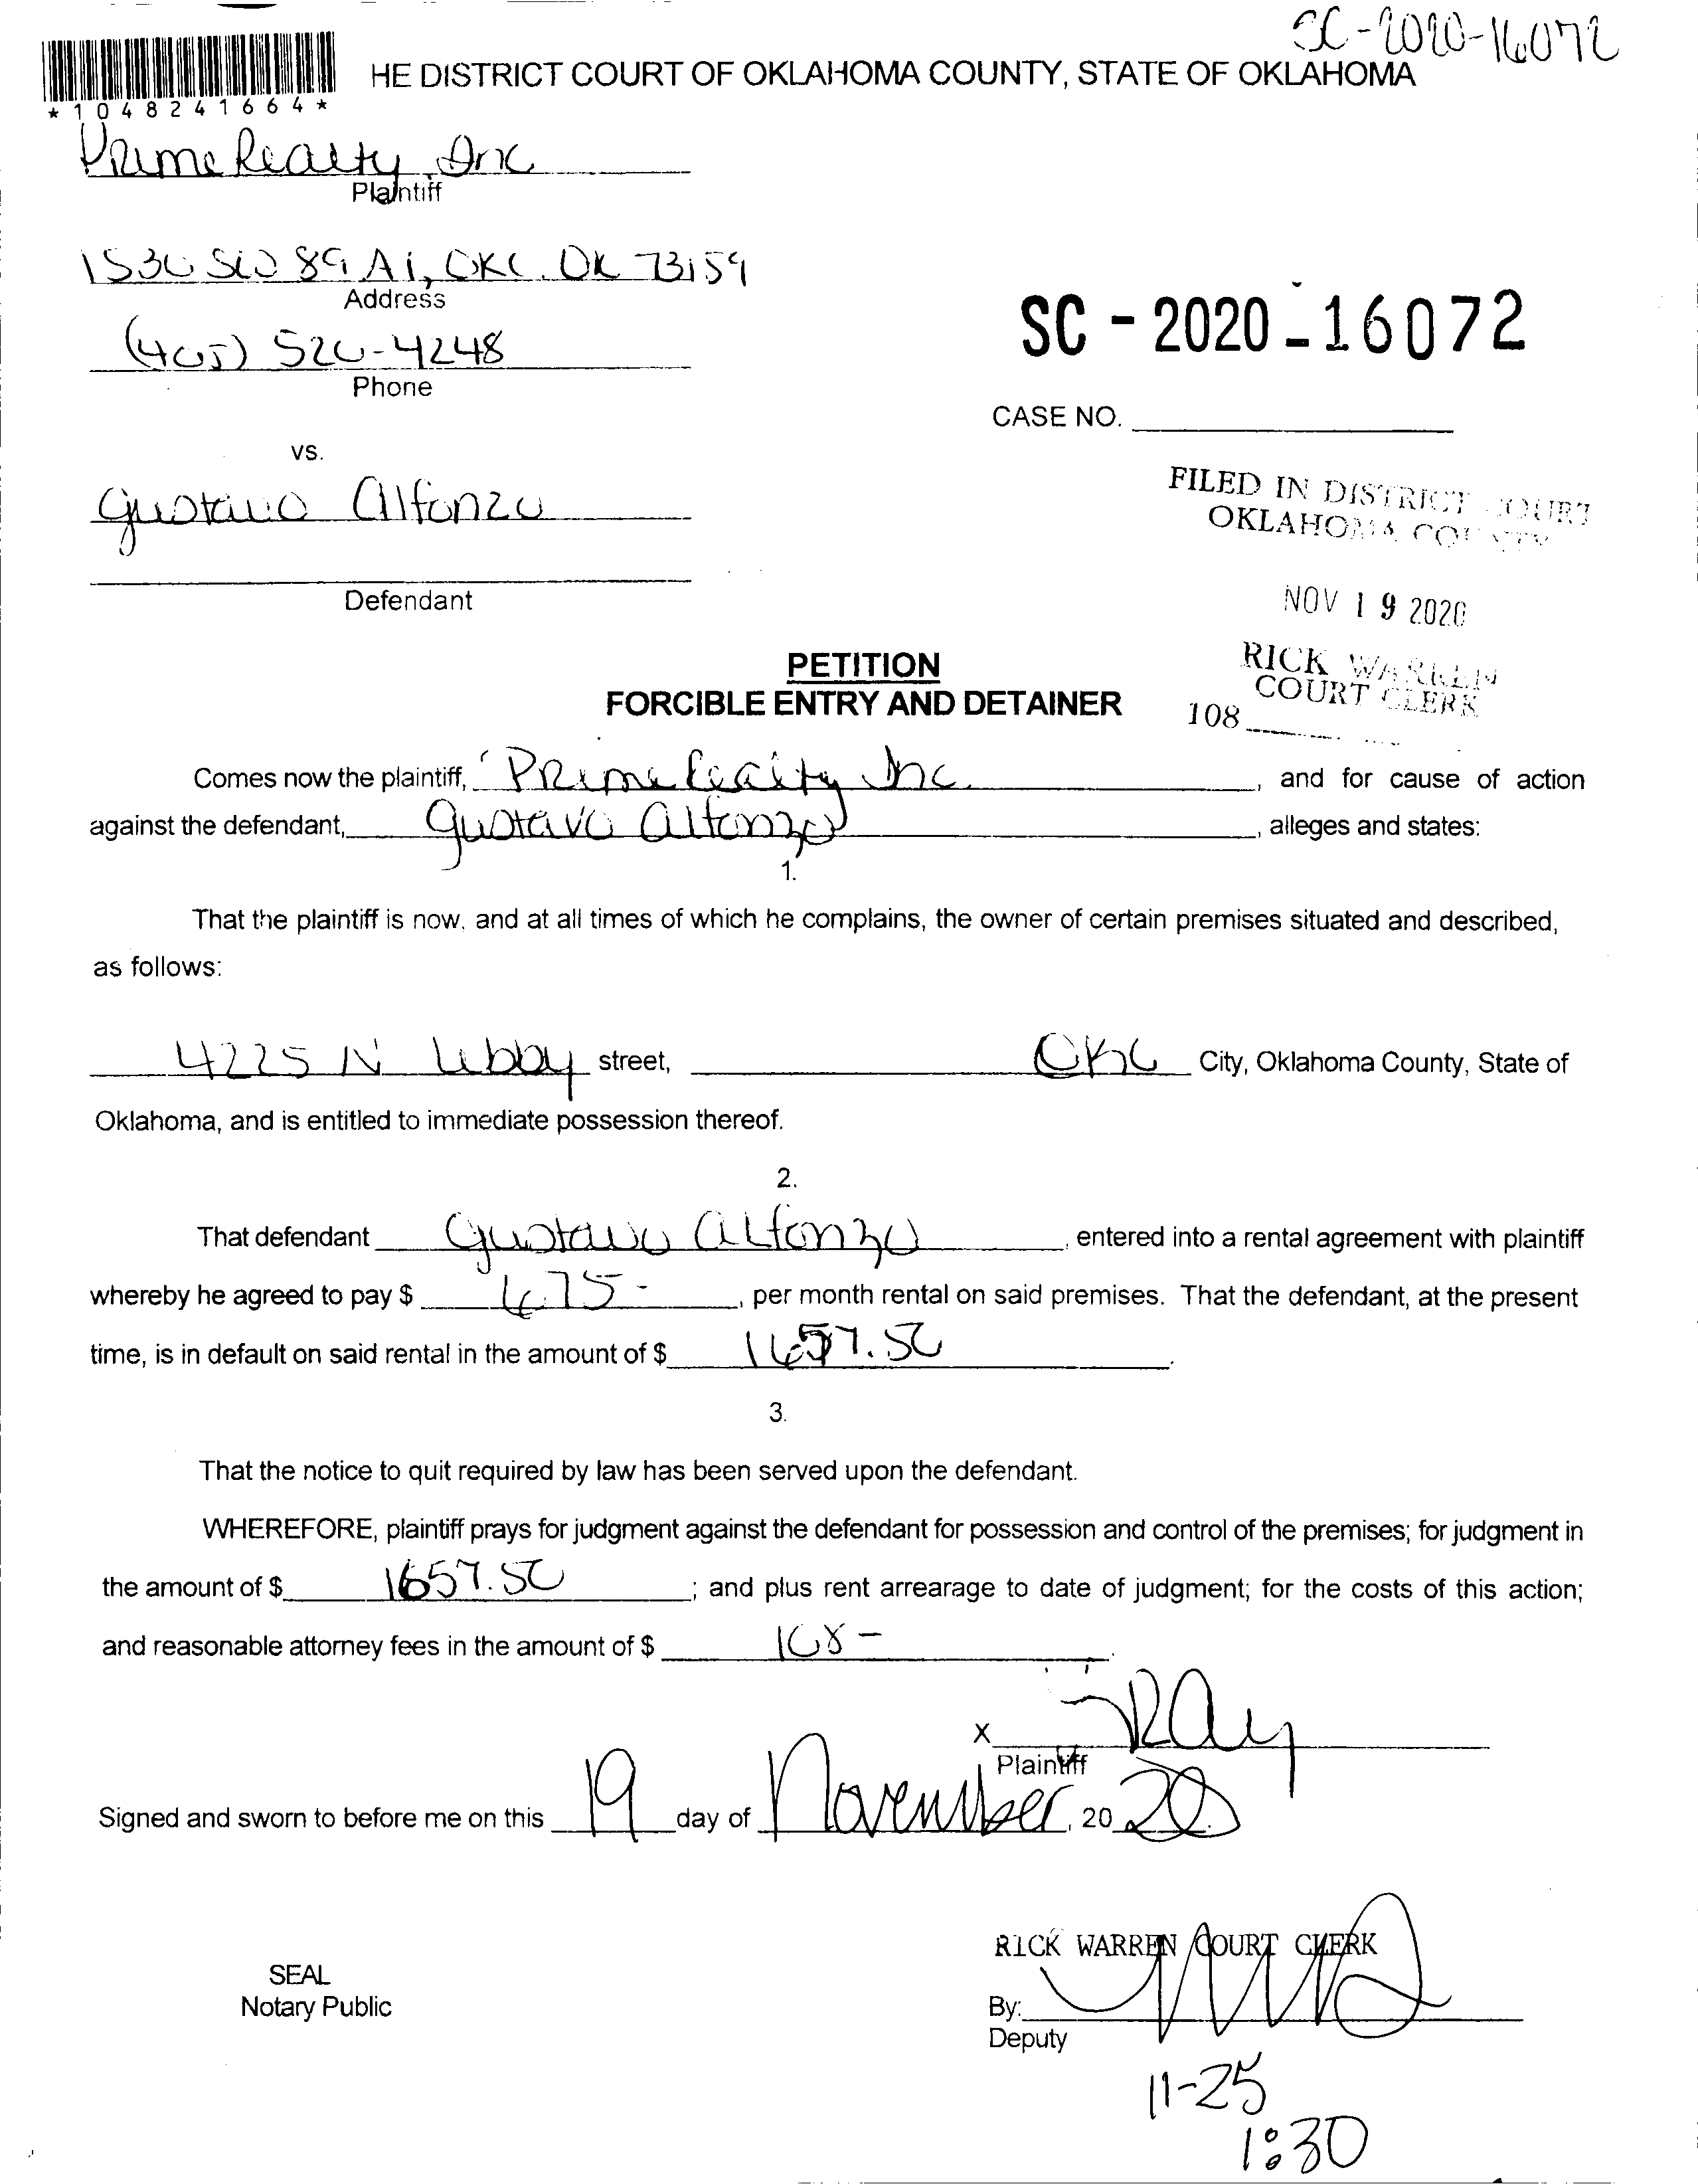 SC-2020-16072
HE DISTRICT COURT OF OKLAHOMA COUNTY, STATE OF OKLAHOMA
*1048241664*
Prime Realty Inc
Plaintiff
1530 SW 89 A1, OKC. OK 73159
Address
(405) 520-4248
Phone
SC - 2020 - 16072
CASE NO.
vs.
Gustavo Alfonzo
Defendant
FILED IN DISTRICT COURT
OKLAHOMA COUNTY
NOV 19 2020
RICK WARREN
COURT CLERK
108
PETITION
FORCIBLE ENTRY AND DETAINER
Comes now the plaintiff, Prime Realty Inc. , and for cause of action
against the defendant, Gustavo Alfonzo , alleges and states:
1.
That the plaintiff is now, and at all times of which he complains, the owner of certain premises situated and described,
as follows:
4225 N Libby street, OKC City, Oklahoma County, State of
Oklahoma, and is entitled to immediate possession thereof.
2.
That defendant Gustavo Alfonzo , entered into a rental agreement with plaintiff
whereby he agreed to pay $ 675- , per month rental on said premises. That the defendant, at the present
time, is in default on said rental in the amount of $ 1657.50 .
3.
That the notice to quit required by law has been served upon the defendant.
WHEREFORE, plaintiff prays for judgment against the defendant for possession and control of the premises; for judgment in
the amount of $ 1657.50 ; and plus rent arrearage to date of judgment; for the costs of this action;
and reasonable attorney fees in the amount of $ 108- .
X
Plaintiff
Signed and sworn to before me on this 19 day of November, 20 20
RICK WARREN COURT CLERK
SEAL
Notary Public
By:
Deputy
11-25
1:30